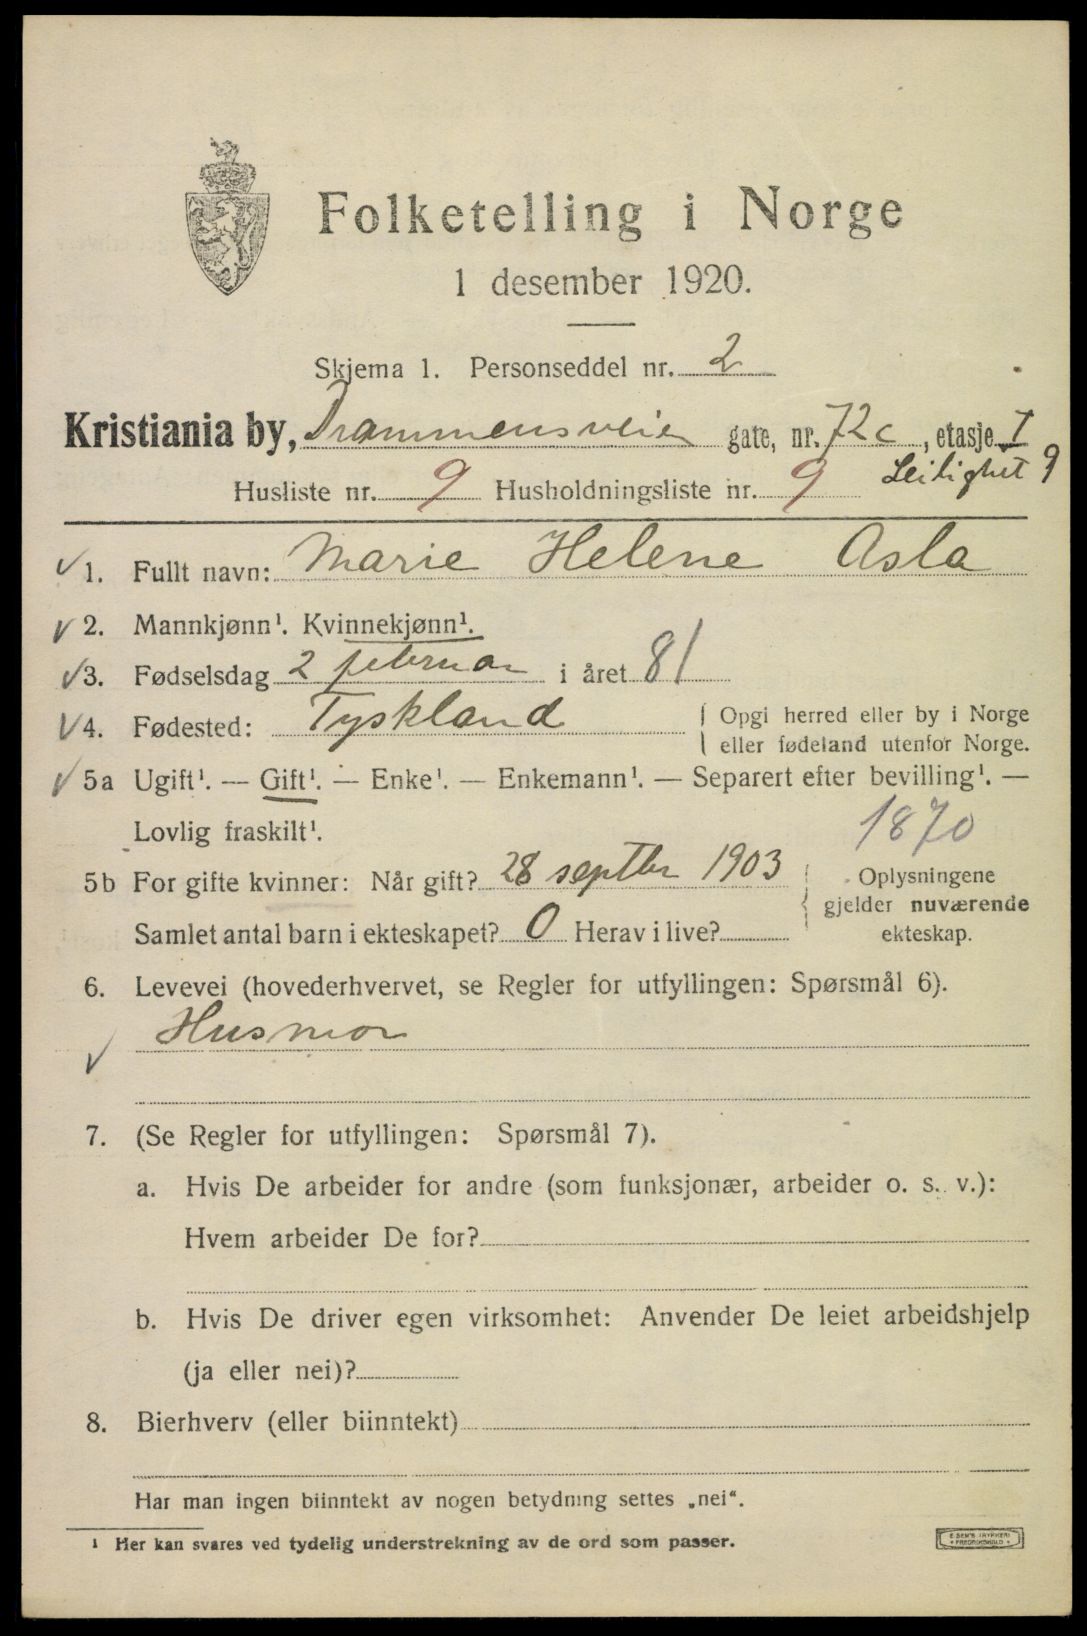 Folketelling i Norge
1 desember 1920.
Skjema 1. Personseddel nr. 2
Kristiania by, Drammensveien gate, nr. 72c, etasje I
Husliste nr. 9 Husholdningsliste nr. 9 Leilighet 9
1. Fullt navn: Marie Helene Asla
2. Mannkjønn¹. Kvinnekjønn¹.
3. Fødselsdag 2 februar i året 81
4. Fødested: Tyskland { Opgi herred eller by i Norge
eller fødeland utenfor Norge.
5a Ugift¹. — Gift¹. — Enke¹. — Enkemann¹. — Separert efter bevilling¹. —
Lovlig fraskilt¹. 1870
5b For gifte kvinner: Når gift? 28 septbr 1903 { Oplysningene
gjelder nuværende
Samlet antal barn i ekteskapet? 0 Herav i live? ekteskap.
6. Levevei (hovederhvervet, se Regler for utfyllingen: Spørsmål 6).
Husmor
7. (Se Regler for utfyllingen: Spørsmål 7).
a. Hvis De arbeider for andre (som funksjonær, arbeider o. s. v.):
Hvem arbeider De for?
b. Hvis De driver egen virksomhet: Anvender De leiet arbeidshjelp
(ja eller nei)?
8. Bierhverv (eller biinntekt)
Har man ingen biinntekt av nogen betydning settes „nei“.
¹ Her kan svares ved tydelig understrekning av de ord som passer.